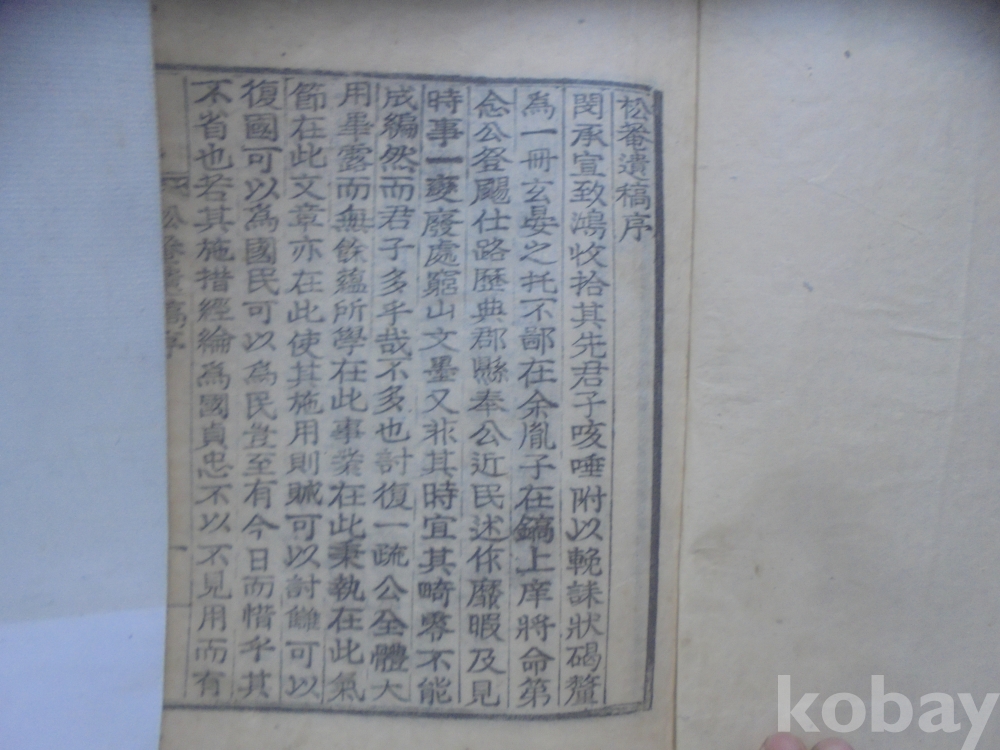 松菴遺稿序
閔承宣致鴻收拾其先君子咳唾附以輓誄狀碣釐
為一冊玄晏之托不鄙在余胤子在鎬上庠將命第
念公登颺仕路歷典郡縣奉公近民述作靡暇及見
時事一變廢處窮山文墨又非其時宜其畸零不能
成編然而君子多乎哉不多也討復一疏公全體大
用畢露而無餘蘊所學在此事業在此秉執在此氣
節在此文章亦在此使其施用則賊可以討讎可以
復國可以為國民可以為民豈至有今日而惜乎其
不省也若其施措經綸為國貞忠不以不見用而有
松菴遺稿序 一
kobay